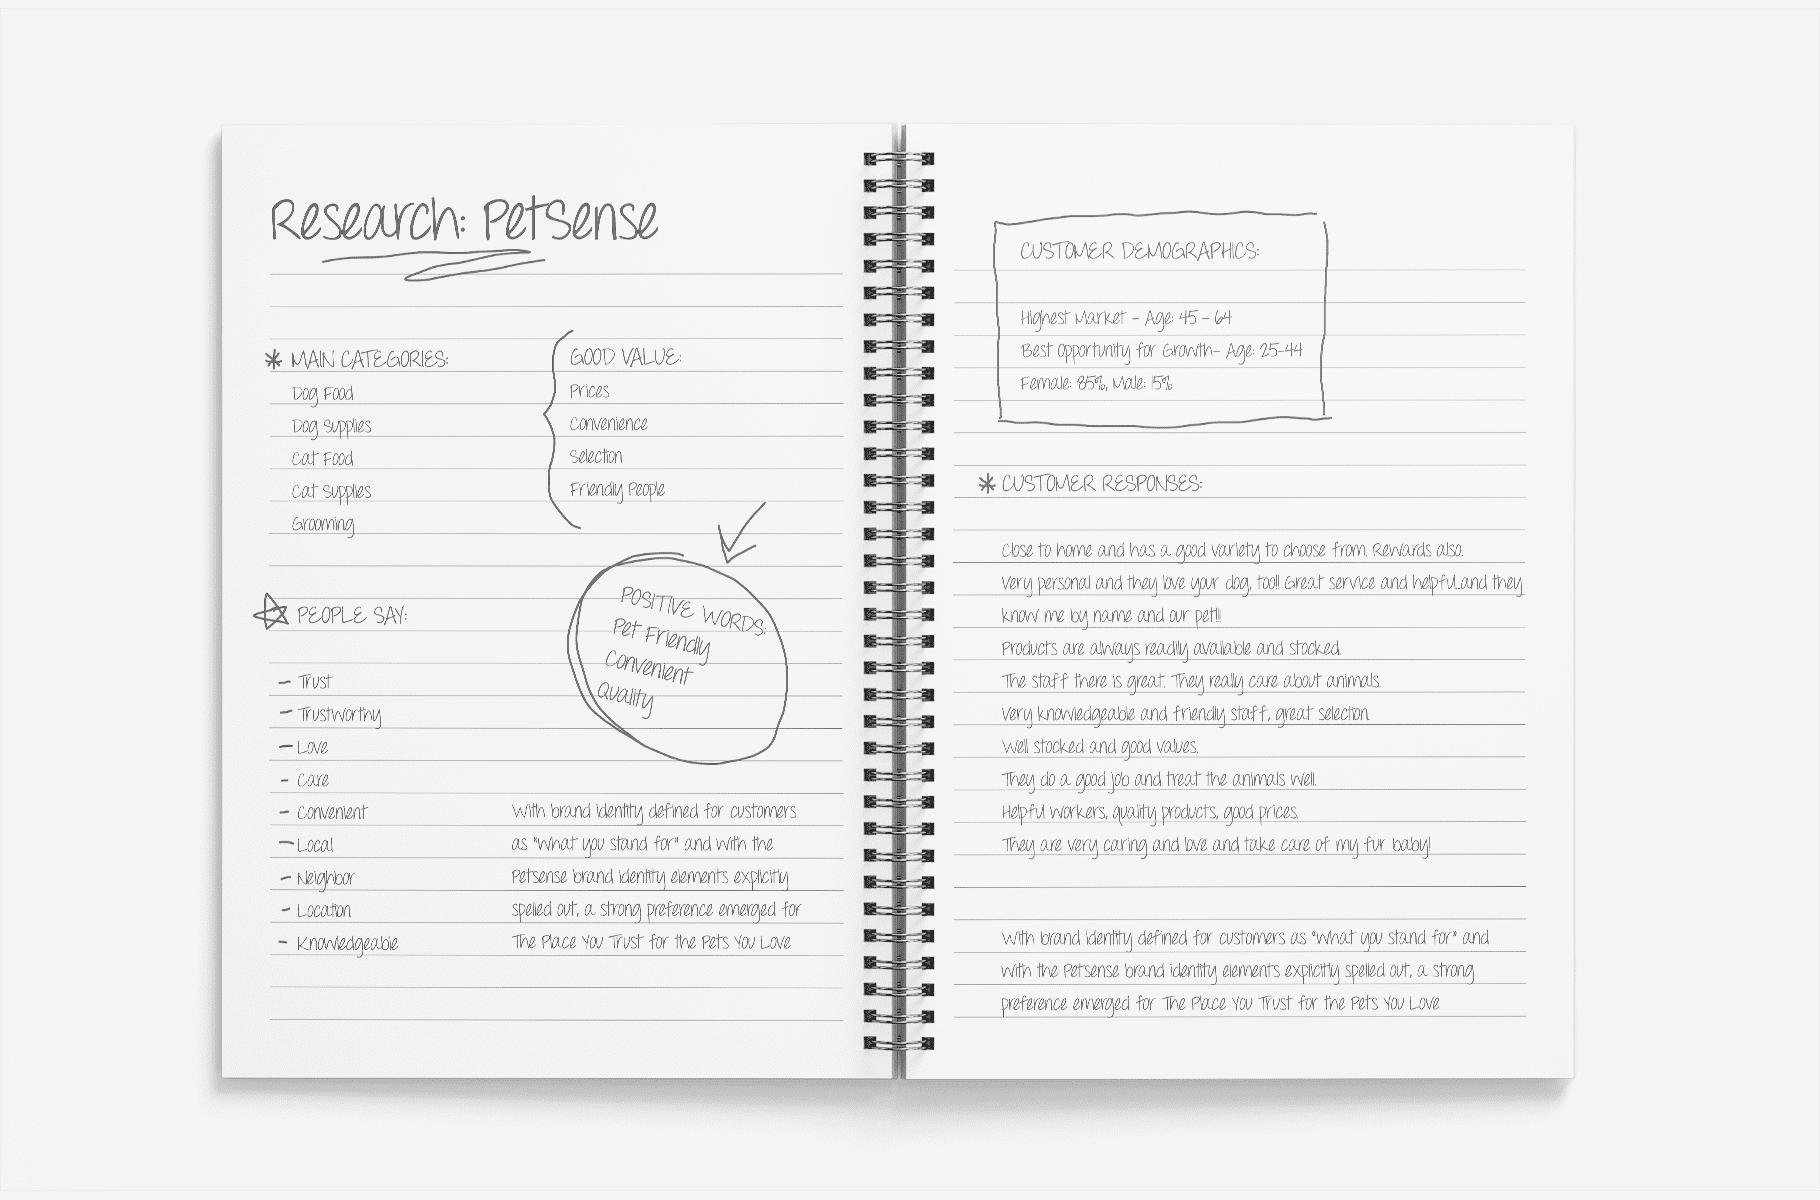 Research: Petsense
* MAIN CATEGORIES:
Dog Food
Dog Supplies
Cat Food
Cat Supplies
Grooming
GOOD VALUE:
Prices
Convenience
Selection
Friendly People
POSITIVE WORDS:
Pet Friendly
Convenient
Quality
PEOPLE SAY:
- Trust
- Trustworthy
- Love
- Care
- Convenient
- Local
- Neighbor
- Location
- Knowledgeable
With brand identity defined for customers
as "What you stand for" and with the
Petsense brand identity elements explicitly
spelled out, a strong preference emerged for
The Place You Trust for the Pets You Love
CUSTOMER DEMOGRAPHICS:
Highest Market - Age: 45 - 64
Best Opportunity for Growth- Age: 25-44
Female: 85%, Male: 15%
* CUSTOMER RESPONSES:
Close to home and has a good variety to choose from. Rewards also.
Very personal and they love your dog, too!! Great service and helpful..and they
know me by name and our pet!!!
Products are always readily available and stocked.
The staff there is great. They really care about animals.
Very knowledgeable and friendly staff, great selection.
Well stocked and good values.
They do a good job and treat the animals well.
Helpful workers, quality products, good prices.
They are very caring and love and take care of my fur baby!
With brand identity defined for customers as "What you stand for" and
with the Petsense brand identity elements explicitly spelled out, a strong
preference emerged for The Place You Trust for the Pets You Love